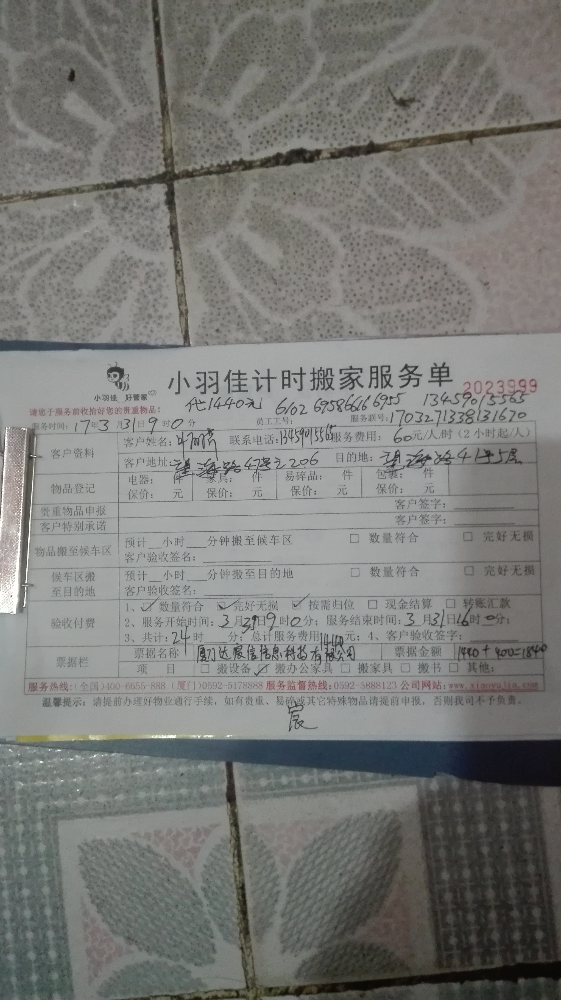 小羽佳 好管家
小羽佳计时搬家服务单
2023999
请您于服务前收拾好您的贵重物品!
代1440元 6102 6958 6616 6955 13459015565
服务时间: 17年3月31日9时0分 员工工号: 服务联号: 1703271338131620
客户资料
客户姓名: 联系电话: 13459015565 服务费用: 60元/人/时(2小时起/人)
客户地址: 望海路47号之206 目的地: 望海路41号5层
物品登记
电器: 件 家具: 件 易碎品: 件 包裹: 件
保价: 元 保价: 元 保价: 元 保价: 元
贵重物品申报 客户签字:
客户特别承诺 客户签字:
物品搬至候车区
预计__小时__分钟搬至候车区 □ 数量符合 □ 完好无损
客户验收签名:
候车区搬至目的地
预计__小时__分钟搬至目的地 □ 数量符合 □ 完好无损
客户验收签名:
验收付费
1、☑数量符合 ☑完好无损 ☑按需归位 □ 现金结算 □ 转账汇款
2、服务开始时间: 3月31日9时0分; 服务结束时间: 3月31日16时0分;
3、共计: 24时 分; 总计服务费用1440元; 4、客户验收签字:
票据栏
票据名称 厦门达展信信息科技有限公司 票据金额 1440+400=1840
项 目 □ 搬设备 ☑搬办公家具 □ 搬家具 □ 搬书 □ 其他:
服务热线:(全国)400-6655-888 (厦门)0592-5178888 服务监督热线:0592-5888123 公司网站:www.xiaoyujia.com
温馨提示: 请提前办理好物业通行手续, 如有贵重、易碎或其它特殊物品请提前申报, 否则我司不予负责。
宸